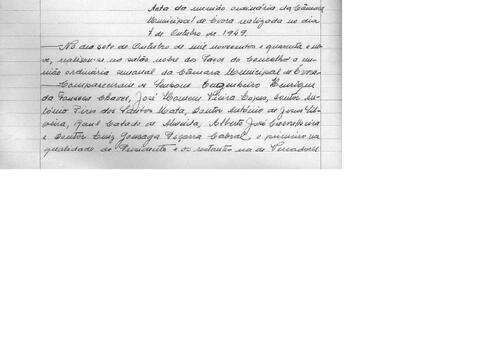 Acta da reunião ordinária da Câmara
Municipal de Évora realizada no dia
7 de Outubro de 1949.
—No dia sete de Outubro de mil novecentos e quarenta e no-
ve, realizou-se no salão nobre dos Paços do Concelho a reu-
nião ordinária semanal da Câmara Municipal de Évora.
—Compareceram os Senhores Engenheiro Henrique
da Fonseca Chaves, José Homem Vieira Lopes, Doutor An-
tónio Pires dos Santos Mata, Doutor António de Jesus Sil-
veira, Raul Calado de Almeida, Alberto José
e Doutor Luiz Gonzaga Segurra Cabral, o primeiro na
qualidade de Presidente e os restantes na de Vereadores